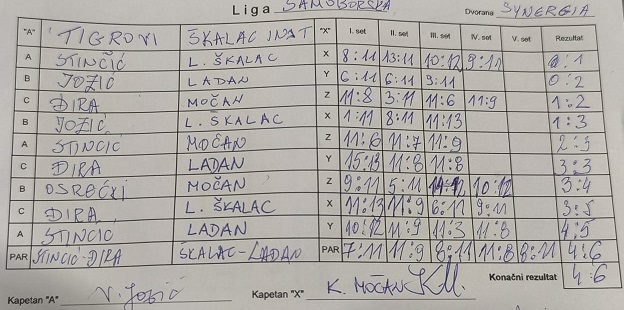 Liga SAMOBORSKA Dvorana SYNERGIA
"A" TIGROVI ŠKALAC INAT "X" I. set II. set III. set IV. set V. set Rezultat
A STINČIĆ L. ŠKALAC X 8:11 13:11 10:12 9:11 0:1
B JOZIĆ LADAN Y 6:11 6:11 9:11 0:2
C ĐIRA MOČAN Z 11:8 3:11 11:6 11:9 1:2
B JOZIĆ L. ŠKALAC X 1:11 8:11 11:13 1:3
A STINCIC MOČAN Z 11:6 11:7 11:9 2:3
C ĐIRA LADAN Y 15:13 11:8 11:8 3:3
B OSREČKI MOČAN Z 9:11 5:11 10:12 3:4
C ĐIRA L. ŠKALAC X 11:13 11:9 6:11 9:11 3:5
A STINCIC LADAN Y 10:12 11:9 11:3 11:8 4:5
PAR STINCIĆ-ĐIRA ŠKALAC-LADAN PAR 7:11 11:9 8:11 11:8 8:11 4:6
Konačni rezultat 4:6
Kapetan "A" V. Jozić Kapetan "X" K. MOČAN